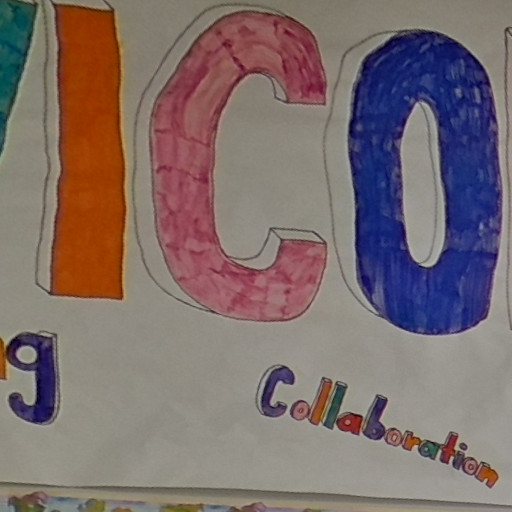 ICO
g
Collaboration